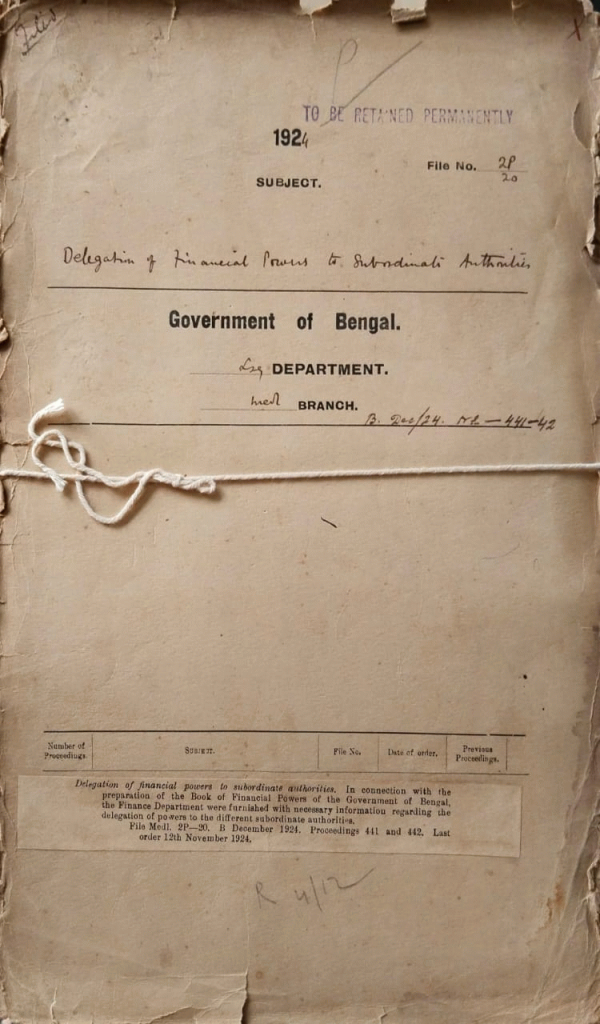 Files
TO BE RETAINED PERMANENTLY
1924
File No. 2P
20
SUBJECT.
Delegation of Financial Powers to Subordinate Authorities
Government of Bengal.
Lsg DEPARTMENT.
Medl BRANCH.
B. Dec/24. No - 441-42
Number of Proceedings.
SUBJECT.
File No.
Date of order.
Previous Proceedings.
Delegation of financial powers to subordinate authorities. In connection with the
preparation of the Book of Financial Powers of the Government of Bengal,
the Finance Department were furnished with necessary information regarding the
delegation of powers to the different subordinate authorities.
File Medl. 2P—20. B December 1924. Proceedings 441 and 442. Last
order 12th November 1924.
R 4/12